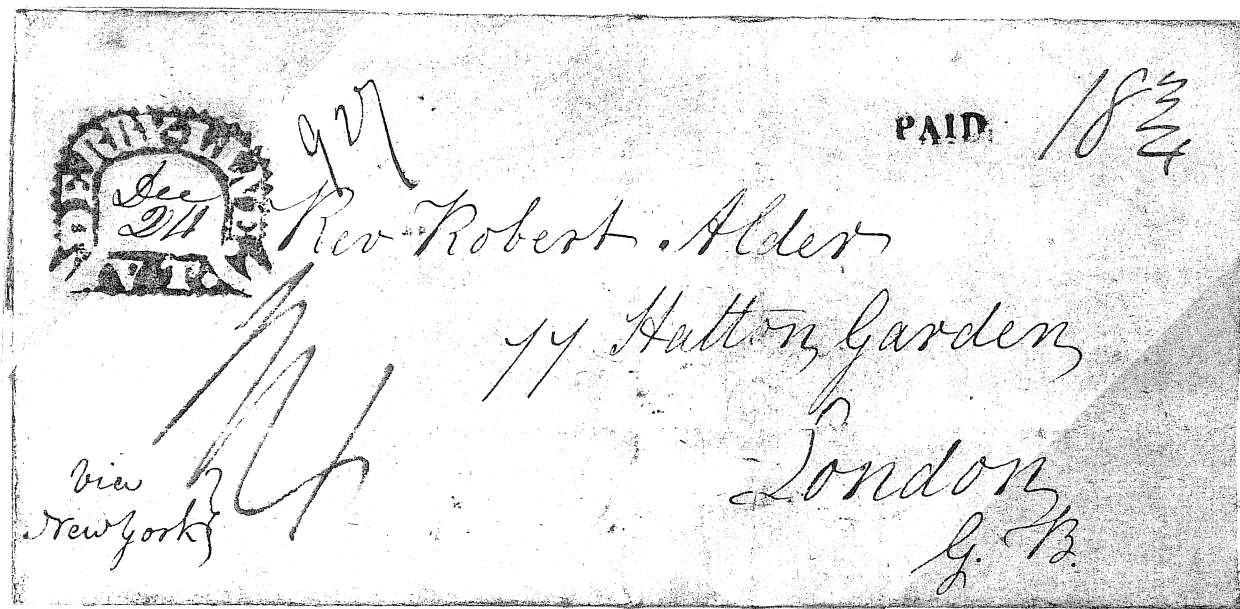 DERBY-LINE
Dec
24
VT.
PAID
18 3/4
Rev Robert Alder
77 Hatton Garden
London
G. B.
via
New York